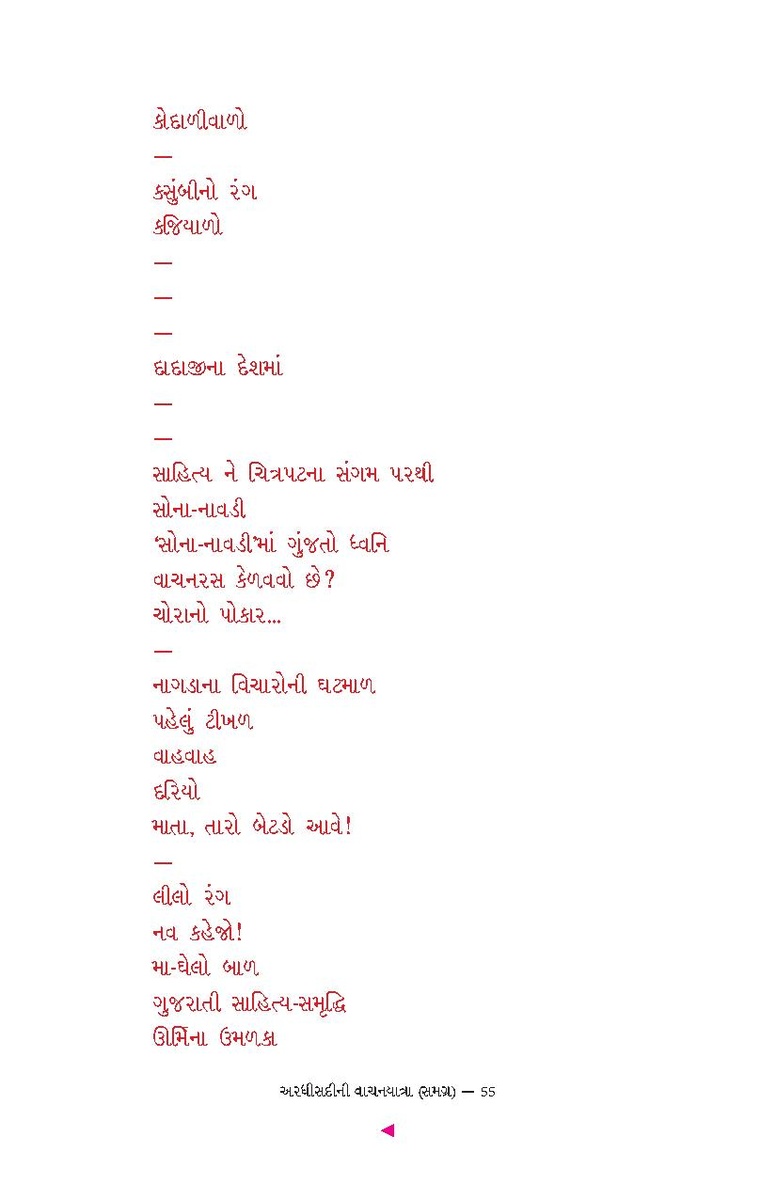 કોદાળીવાળો
—
કસુંબીનો રંગ
કજિયાળો
—
—
—
દાદાજીના દેશમાં
—
—
સાહિત્ય ને ચિત્રપટના સંગમ પરથી
સોના-નાવડી
‘સોના-નાવડી’માં ગુંજતો ધ્વનિ
વાચનરસ કેળવવો છે?
ચોરાનો પોકાર...
—
નાગડાના વિચારોની ઘટમાળ
પહેલું ટીખળ
વાહવાહ
દરિયો
માતા, તારો બેટડો આવે!
—
લીલો રંગ
નવ કહેજો!
મા-ઘેલો બાળ
ગુજરાતી સાહિત્ય-સમૃદ્ધિ
ઊર્મિના ઉમળકા
અરધીસદીની વાચનયાત્રા (સમગ્ર) — 55